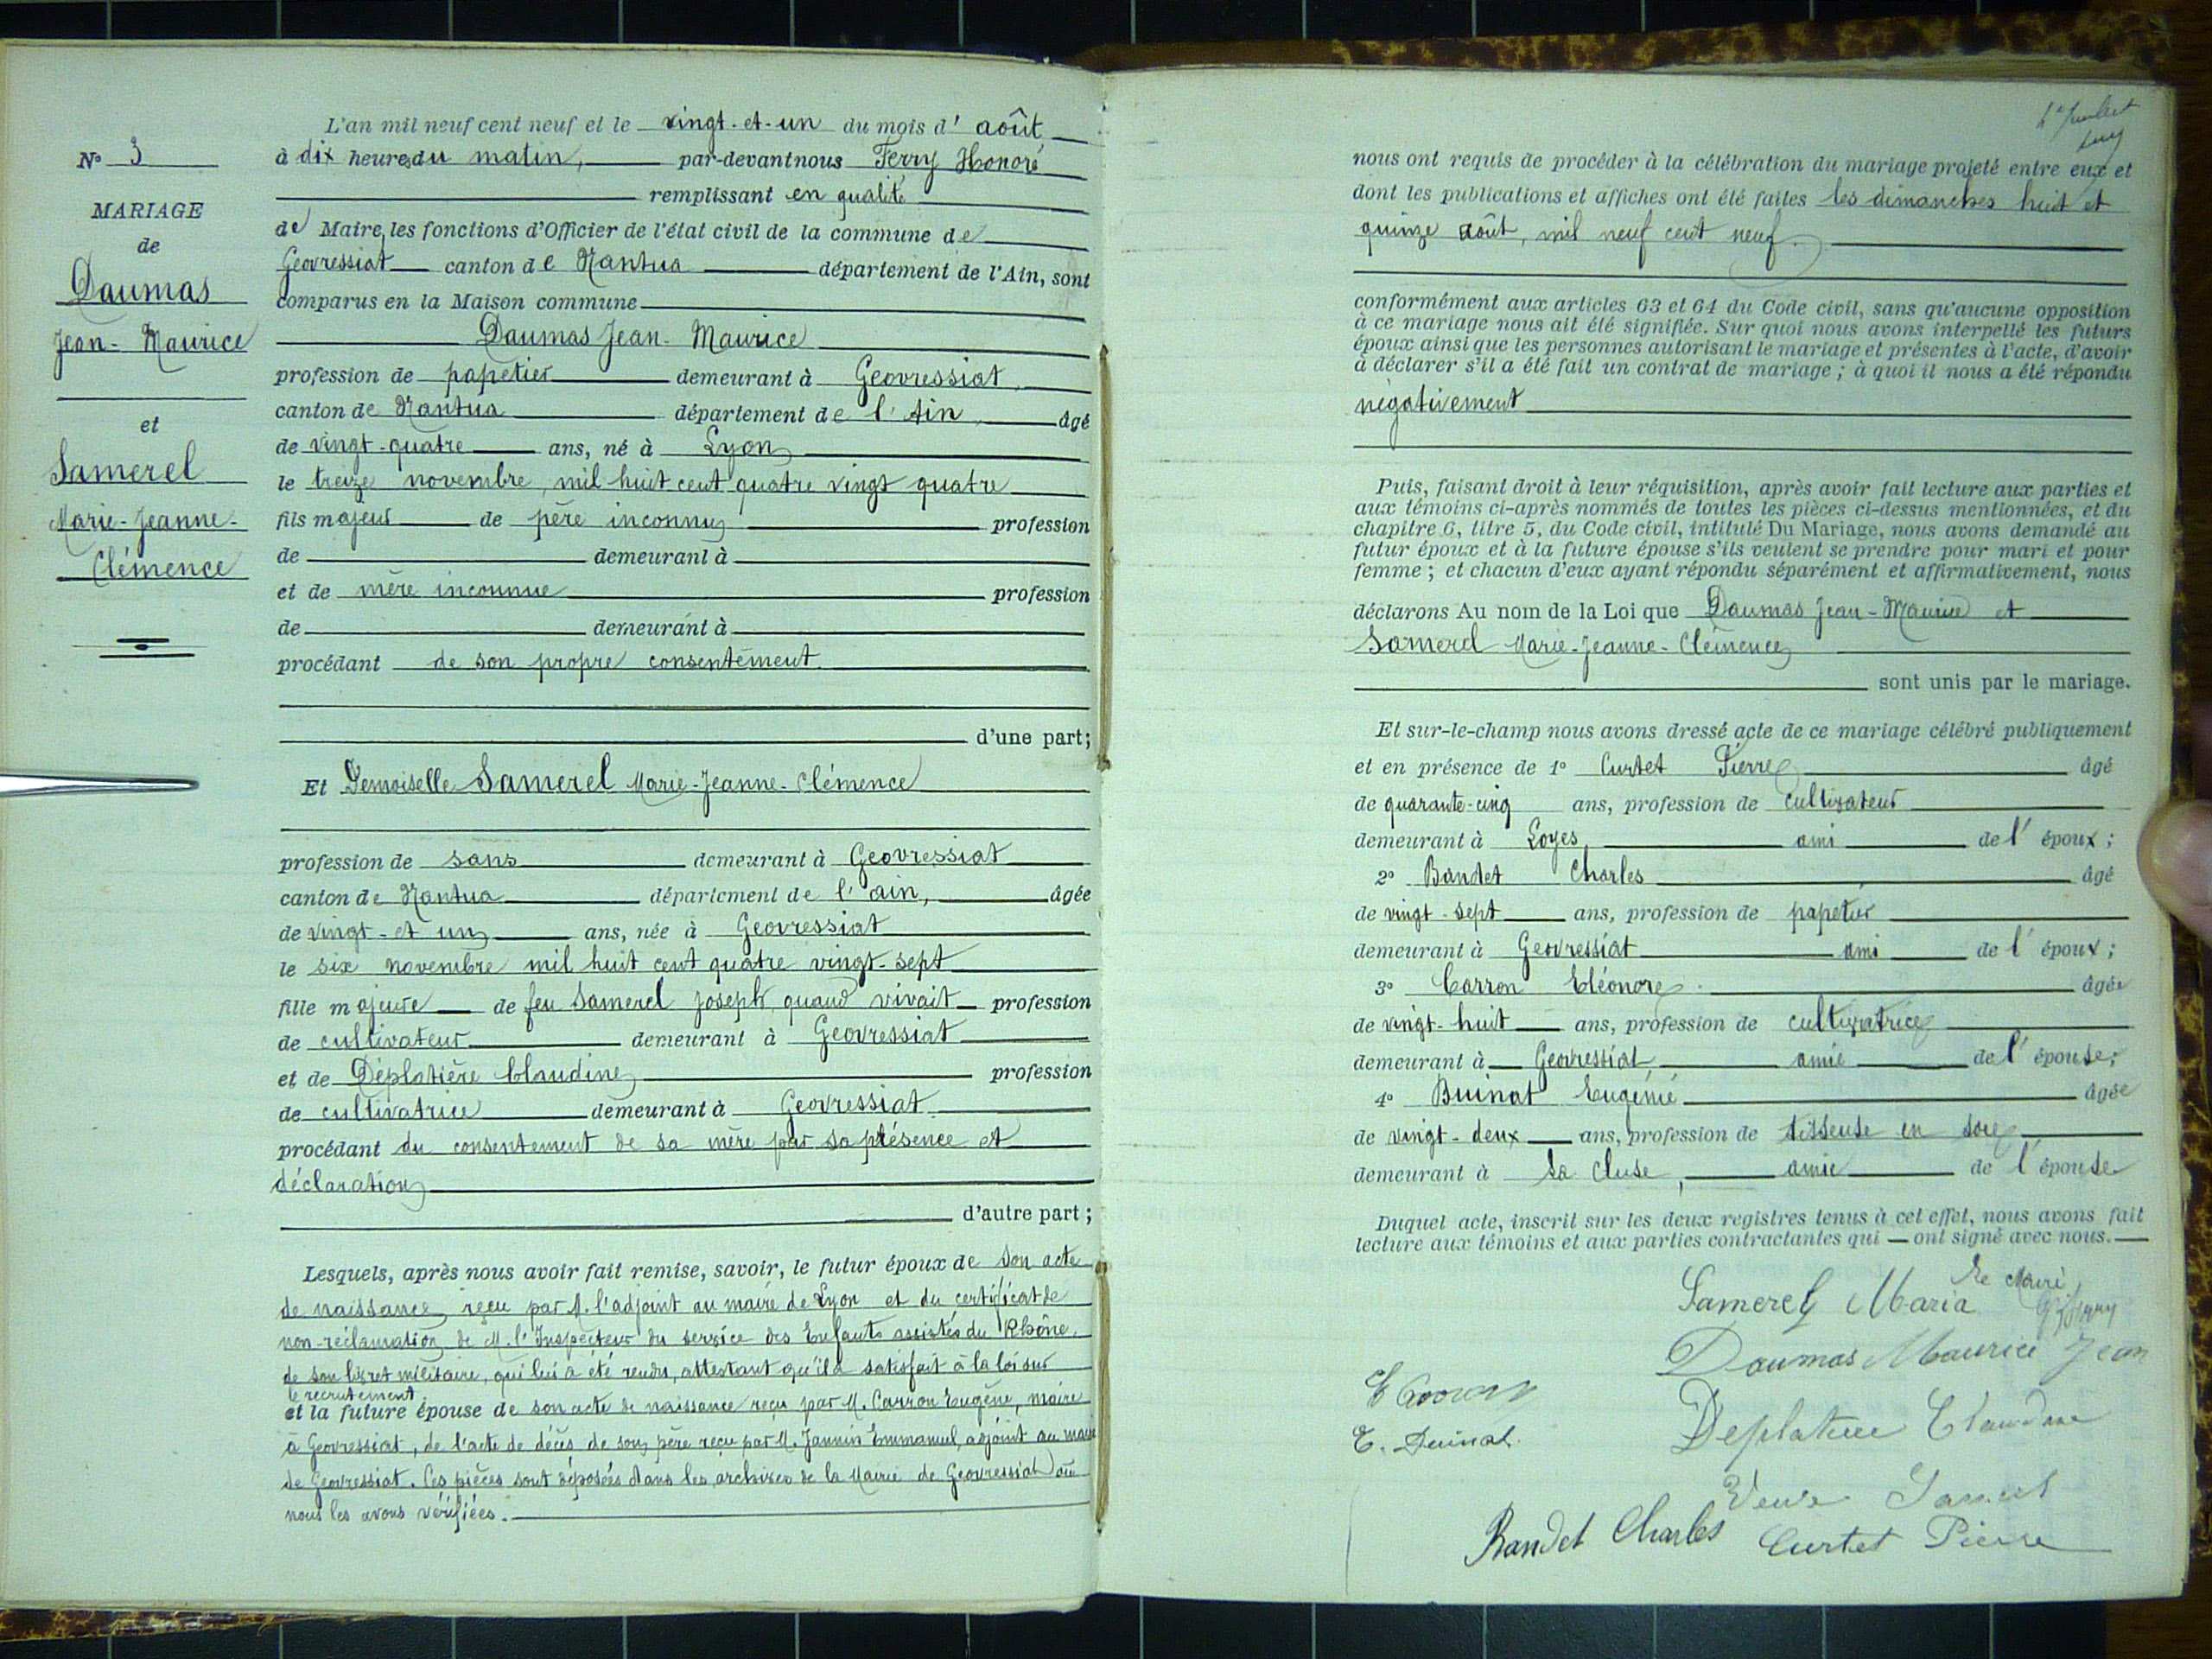 N° 3
MARIAGE
de
Daumas
Jean-Maurice
et
Samerel
Marie-Jeanne-
Clémence
L'an mil neuf cent neuf et le vingt-et-un du mois d'août
à dix heures du matin, par-devant nous Ferry Honoré
remplissant en qualité
de Maire, les fonctions d'Officier de l'état civil de la commune de
Geovressiat canton de Nantua département de l'Ain, sont
comparus en la Maison commune
Daumas Jean-Maurice
profession de papetier demeurant à Geovressiat,
canton de Nantua département de l'Ain, âgé
de vingt-quatre ans, né à Lyon
le treize novembre, mil huit cent quatre vingt quatre
fils majeur de père inconnu profession
de demeurant à
et de mère inconnue profession
de demeurant à
procédant de son propre consentement
d'une part;
Et Demoiselle Samerel Marie-Jeanne-Clémence
profession de sans demeurant à Geovressiat
canton de Nantua département de l'ain, âgée
de vingt-et un ans, née à Geovressiat
le six novembre mil huit cent quatre vingt-sept
fille majeure de feu Samerel Joseph, quand vivait profession
de cultivateur demeurant à Geovressiat
et de Déplatière Claudine profession
de cultivatrice demeurant à Geovressiat
procédant du consentement de sa mère par sa présence et
déclaration
d'autre part;
Lesquels, après nous avoir fait remise, savoir, le futur époux de son acte
de naissance reçu par M. l'adjoint au maire de Lyon et du certificat de
non-réclamation de M. l'Inspecteur du service des Enfants assistés du Rhône,
de son livret militaire, qui lui a été rendu, attestant qu'il a satisfait à la loi sur
le recrutement.
et la future épouse de son acte de naissance reçu par M. Carron Eugène, maire
à Geovressiat, de l'acte de décès de son père reçu par M. Jannin Emmanuel, adjoint au maire
de Geovressiat. Ces pièces sont déposées dans les archives de la Mairie de Geovressiat où
nous les avons vérifiées.
nous ont requis de procéder à la célébration du mariage projeté entre eux et
dont les publications et affiches ont été faites les dimanches huit et
quinze août, mil neuf cent neuf.
conformément aux articles 63 et 64 du Code civil, sans qu'aucune opposition
à ce mariage nous ait été signifiée. Sur quoi nous avons interpellé les futurs
époux ainsi que les personnes autorisant le mariage et présentes à l'acte, d'avoir
à déclarer s'il a été fait un contrat de mariage; à quoi il nous a été répondu
négativement
Puis, faisant droit à leur réquisition, après avoir fait lecture aux parties et
aux témoins ci-après nommés de toutes les pièces ci-dessus mentionnées, et du
chapitre 6, titre 5, du Code civil, intitulé Du Mariage, nous avons demandé au
futur époux et à la future épouse s'ils veulent se prendre pour mari et pour
femme; et chacun d'eux ayant répondu séparément et affirmativement, nous
déclarons Au nom de la Loi que Daumas Jean-Maurice et
Samerel Marie-Jeanne-Clémence
sont unis par le mariage.
Et sur-le-champ nous avons dressé acte de ce mariage célébré publiquement
et en présence de 1° Curtet Pierre âgé
de quarante-cinq ans, profession de cultivateur
demeurant à Loyes, ami de l'époux;
2° Bandet Charles âgé
de vingt-sept ans, profession de papetier
demeurant à Geovressiat ami de l'époux;
3° Carron Eléonore âgée
de vingt-huit ans, profession de cultivatrice
demeurant à Geovressiat, amie de l'épouse;
4° Buinat Eugénie âgée
de vingt-deux ans, profession de tisseuse en soie
demeurant à La Cluse, amie de l'épouse
Duquel acte, inscrit sur les deux registres tenus à cet effet, nous avons fait
lecture aux témoins et aux parties contractantes qui ont signé avec nous.
Le Maire
Samerel Maria
Daumas Maurice Jean
E. Buinat
Deplatière Claudine
Veuve Samerel
Bandet Charles Curtet Pierre